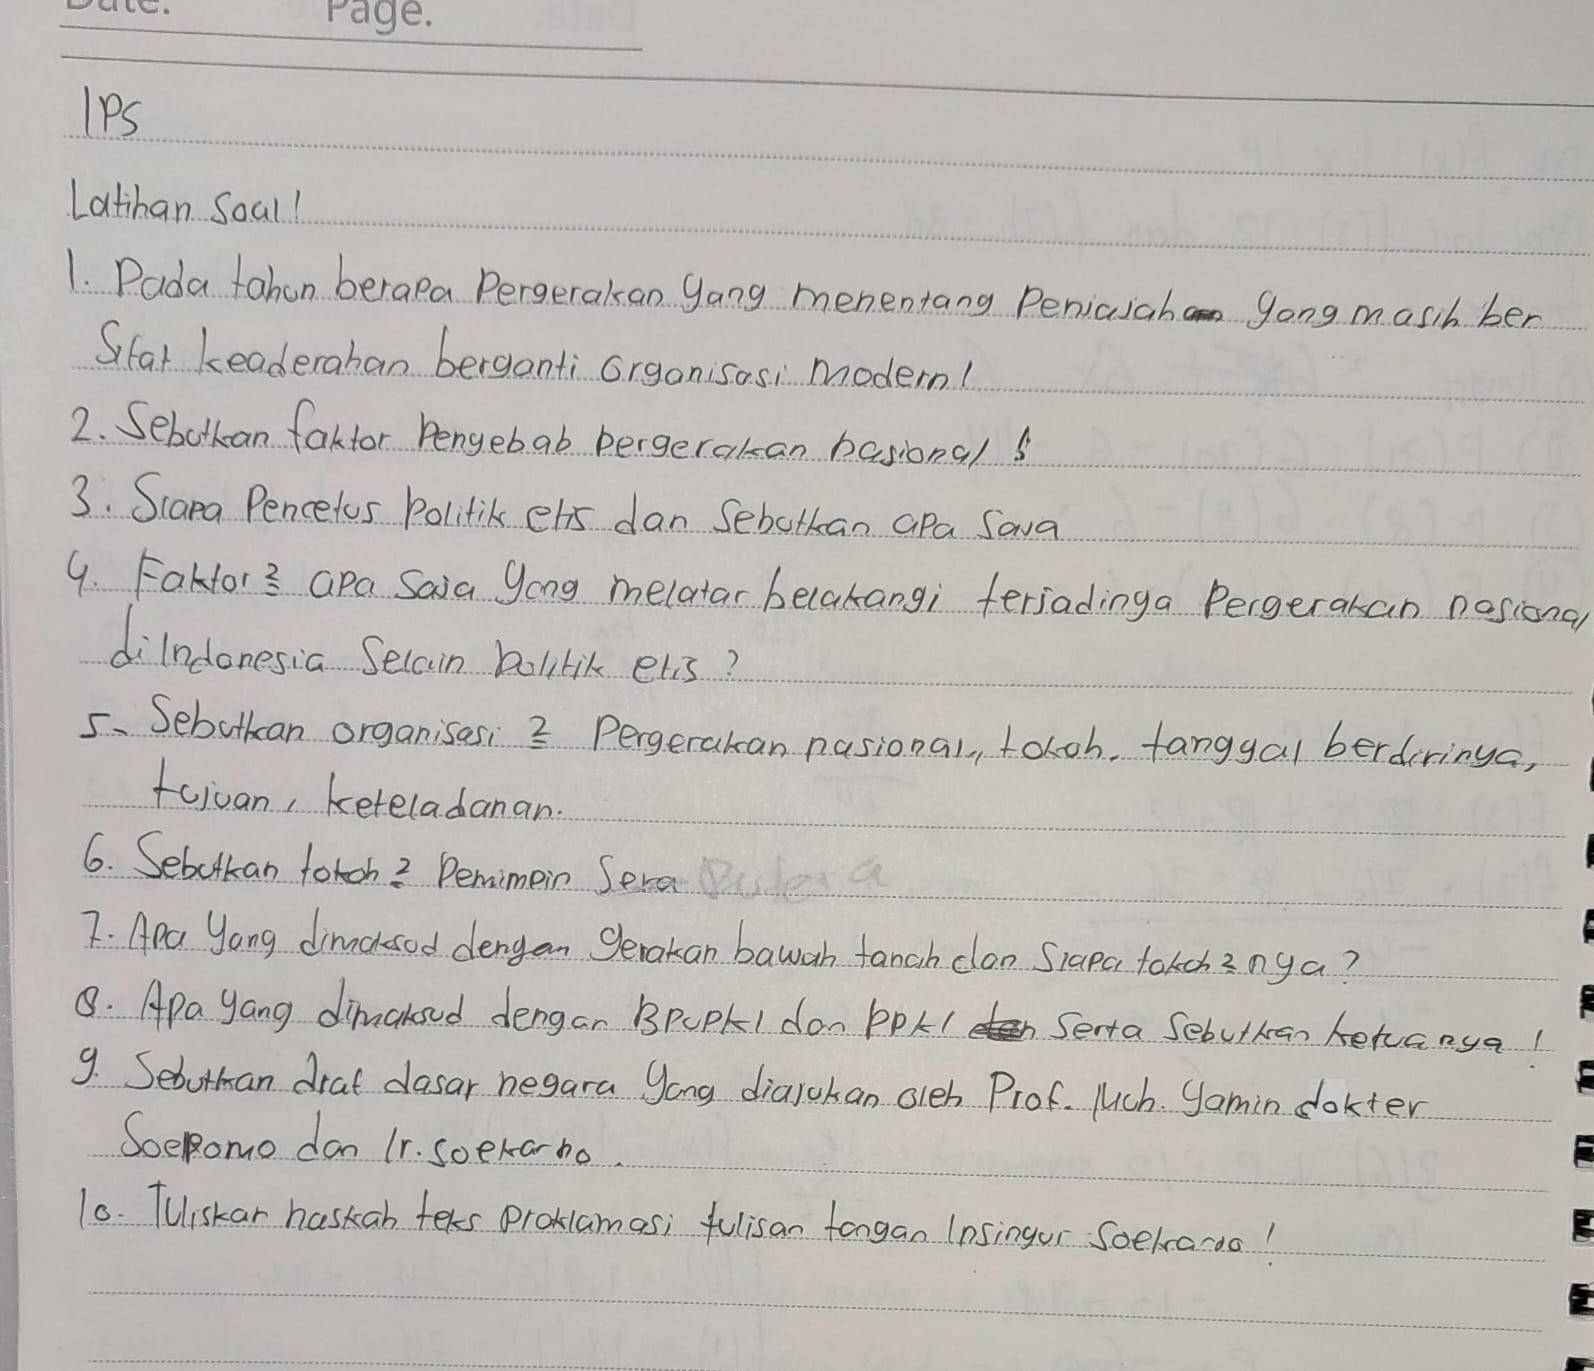 Page.
IPS
Latihan Soal!
1. Pada tahun berapa Pergerakan yang menentang Penjajah yang masih ber
Sifat keaderahan berganti Organisasi Modern!
2. Sebutkan faktor Penyebab pergerakan nasional !
3. Siapa Pencetus Politik etis dan Sebutkan apa Saja
4. Faktor2 apa saja yang melatar belakangi terjadinya Pergerakan nasional
diIndonesia Selain politik etis?
5. Sebutkan organisasi 2 Pergerakan nasional, tokoh, tanggal berdirinya,
tujuan, keteladanan.
6. Sebutkan tokoh2 Pemimpin Sera Putera
7. Apa yang dimaksud dengan gerakan bawah tanah dan Siapa tokoh2nya?
8. Apa yang dimaksud dengan BPUPKI dan PPKI Serta Sebutkan ketuanya!
9. Sebutkan draf dasar negara yang diajukan oleh Prof. Much. Yamin dokter
Soepomo dan Ir. Soekarno.
10. Tuliskan naskah teks proklamasi tulisan tangan Insinyur Soekarno!